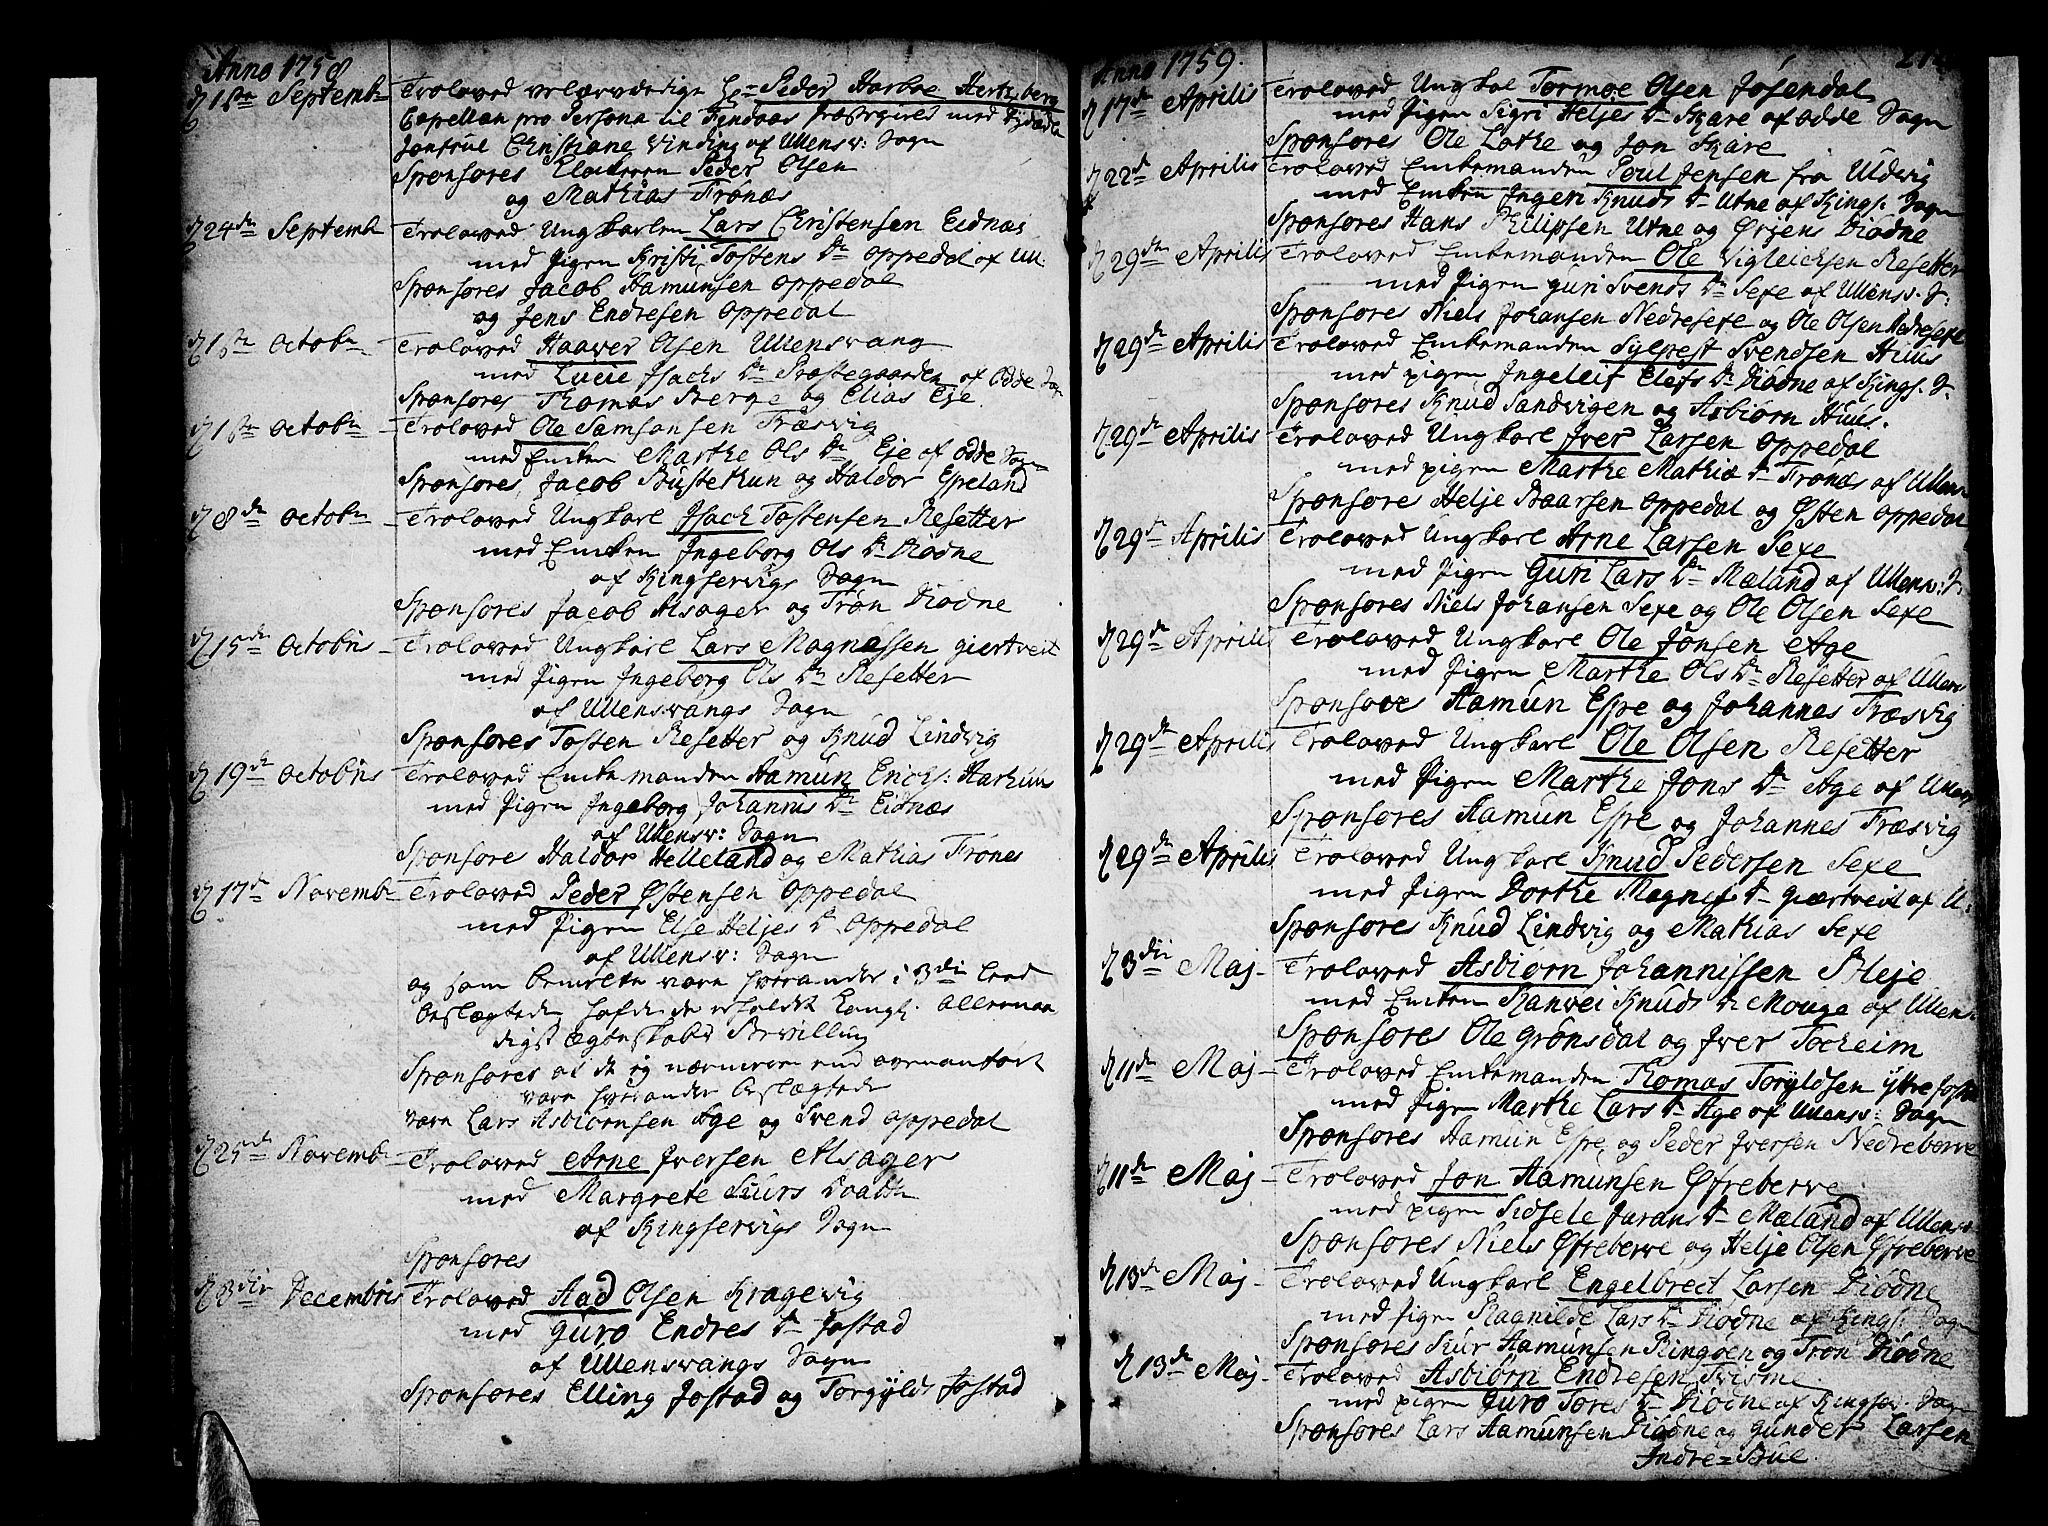 Anno 1758
d 1ste Septemb Troloved velærværdige Hr Peder Harboe Hertzberg
Capellan pro Persona til Findaas Præstegield med
Jomfrue Christiane Vinding af Ullensv: Sogn
Sponsores Klokeren Peder Olsen
og Mathias Tronæs
d 24de Septemb Troloved Ungkarlen Lars Christensen Eidnæs
med Pigen Kristi Tostens Dr Oppedal af Ull:
Sponsores Jacob Aamunsen Oppedal
og Jens Endresen Oppedal
d 1ste Octobr Troloved Haaver Olsen Ullensvang
med Lucie Isachs Dr Præstegaarden af Odde Sogn
Sponsores Thomas Berge og Elias Eje
d 1ste Octobr Troloved Ole Samsonsen Træsvig
med Enken Marthe Ols Dr Eje af Odde Sogn
Sponsores Jacob Bustethun og Haldor Espeland
d 8de Octobr Troloved Ungkarl Isach Tostensen Resetter
med Enken Ingeborg Ols Dr Diødne
af Kingservigs Sogn
Sponsores Jacob Alsager og Tron Diødne
d 15de Octobris Troloved Ungkarl Lars Magnessen giertveit
med Pigen Ingeborg Ols Dr Resetter
af Ullensvangs Sogn
Sponsores Tosten Resetter og Knud Lindvig
d 19de Octobris Troloved Enkemanden Aamun Erichs: Aarhuus
med Pigen Ingeborg Johannis Dr Eidnæs
af Ullensv: Sogn
Sponsore Haldor Helleland og Mathias Trones
d 17de Novemb Troloved Peder Østensen Oppedal
med Pigen Else Heljes Dr Oppedal
af Ullensv: Sogn
og som bemelte vare hverander i 3die Leed
beslægtede, hafde de erholdt Kongl. allernaa
digst Ægteskabs Bevilling
Sponsores at de ej nærmere end ovenanført
vare hverander beslægtede
vare Lars Asbiørnsen Age og Svend Oppedal
d 25de Novemb Troloved Arne Iversen Alsager
med Margrete Siurs Daatter
af Kingservigs Sogn
Sponsores
d 3die Decembris Troloved Aad Olsen Kragevig
med Guro Endres Dr Jostad
af Ullensvangs Sogn
Sponsores Elling Jostad og Torgyld Jostad
Anno 1759.
d 17de Aprilis Troloved Ungkal Tormoe Olsen Jøsendal
med Pigen Sigri Heljes Dr Skare af Odde Sogn
Sponsores Ole Lothe og Jon Skare
d 22de Aprilis Troloved Enkemanden Poul Jensen fra Uldvig
med Enken Ingeri Knuds Dr Utne af Kings: Sogn
Sponsores Hans Philipsen Utne og Ørjens Diødne
d 29de Aprilis Troloved Enkemanden Ole Vigleichsen Resetter
med Pigen guri Svends Dr Sexe af Ullensv. S:
Sponsores Niels Johansen Nedresexe og Ole Olsen Nedresexe
d 29de Aprilis Troloved Enkemanden Sylfest Svendsen Huus
med pigen Ingeleif Elefs Dr Diødne af Kings. S.
Sponsores Knud Sandvigen og Asbiørn Huus.
d 29de Aprilis Troloved Ungkarl Iver Larsen Oppedal
med pigen Marthe Mathiæ Dr Tronæs af Ullen
Sponsore Helje Baarsen Oppedal og Østen Oppedal
d 29de Aprilis Troloved Ungkarl Arne Larsen Sexe
med Pigen Guri Lars Dr Mæland af Ullensv: S.
Sponsores Niels Johansen Sexe og Ole Olsen Sexe
d 29de Aprilis Troloved Ungkarl Ole Jonsen Age
med Pigen Marthe Ols Dr Resetter af Ullen
Sponsore Aamun Espe og Johannes Træsvig
d 29de Aprilis Troloved Ungkarl Ole Olsen Resetter
med Pigen Marthe Jons Dr Age af Ullens
Sponsores Aamun Espe og Johannes Træsvig
d 29de Aprilis Troloved Ungkarl Knud Pedersen Sexe
med Pigen Dorthe Magnes Dr giærtveit af U:
Sponsores Knud Lindvig og Mathias Sexe
d 3die Maj Troloved Asbiørn Johannissen Pleje
med Enken Ranvei Knuds Dr Mouge af Ullen
Sponsores Ole Grønsdal og Iver Tocheim
d 11de Maj Troloved Enkemanden Thomas Torgyldsen ytre
med Pigen Marthe Lars Dr Age af Ullensv: Sogn
Sponsores Aamun Espe og Peder Iversen Nedreberve
d 11de Maj Troloved Jon Aamunsen Øfreberve
med pigen Sidsele Jurans Dr Mæland af Ullens
Sponsores Niels Øfreberve og Helje Olsen Øfreberve
d 13de Maj Troloved Ungkarl Engelbrect Larsen Diødne
med Pigen Ragnilde Lars Dr Diødne af Kings: Sogn
Sponsores Siur Aamunsen Ringøen og Tron Diødne
d 13de Maj Troloved Asbiørn Endresen Trisme
med pigen Guro Tores Dr Diødne af Kingser. Sogn
Sponsores Lars Aamunsen Diødne og Gunder Larsen
Indre=Bue